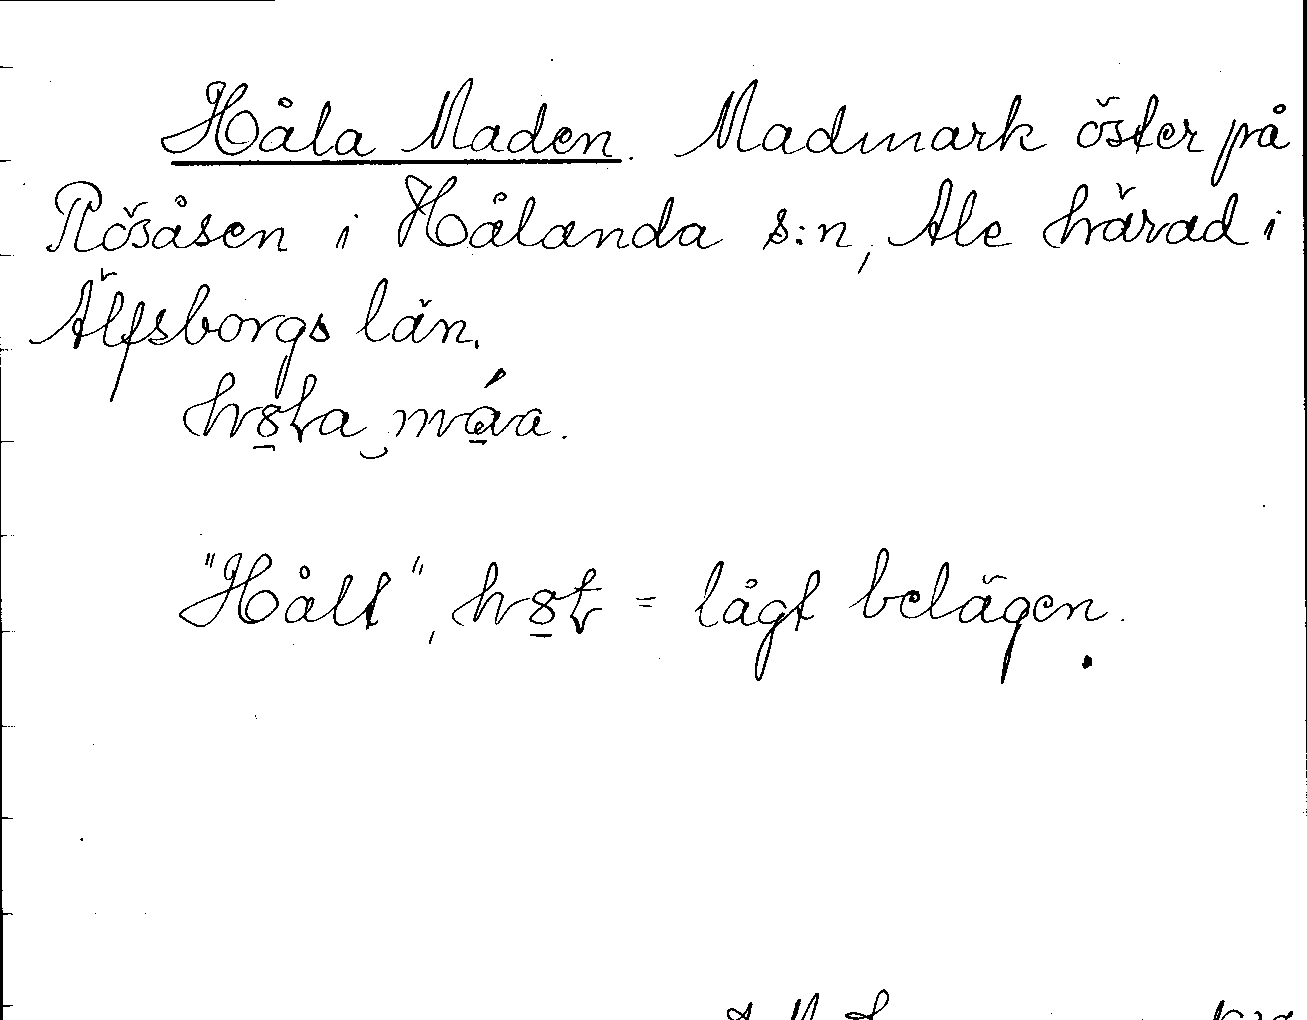 Håla Maden. Madmark öster på
Rösåsen i Hålanda s:n, Ale härad i
Älfsborgs län.
"Hålt", = lågt belägen.